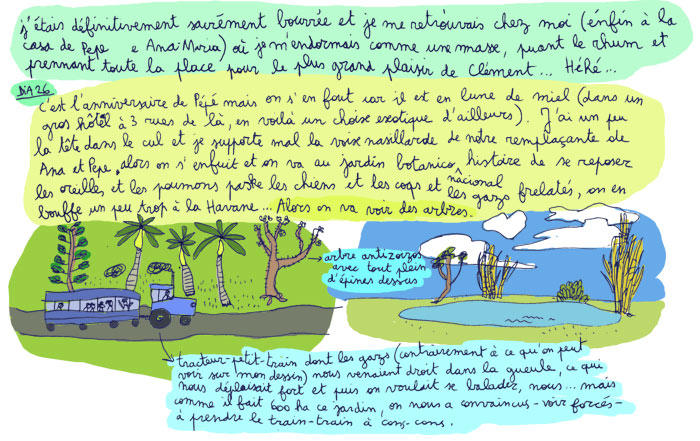 j'étais définitivement sacrément bourrée et je me retrouvais chez moi (énfin à la
casa de Pepe e Ana-Maria) où je m'endormais comme une masse, puant le rhum et
prennant toute la place pour le plus grand plaisir de Clément... Héhé...
DiA 26
c'est l'anniversaire de Pépé mais on s'en fout car il est en lune de miel (dans un
gros hôtel à 3 rues de là, en voilà un choise exotique d'ailleurs). J'ai un peu
la tête dans le cul et je supporte mal la voix nasillarde de notre remplaçante de
Ana et Pepe, alors on s'enfuit et on va au jardin botanico nâcional, histoire de se reposer
les oreilles et les poumons parske les chiens et les coqs et les gazs frelatés, on en
bouffe un peu trop à la Havane... Alors on va voir des arbres.
arbre antizoizos
avec tout plein
d'épines dessus
tracteur-petit-train dont les gazs (contrairement à ce qu'on peut
voir sur mon dessin) nous venaient droit dans la gueule, ce qui
nous déplaisait fort et puis on voulait se balader, nous... mais
comme il fait 600 ha ce jardin, on nous a convaincus-voir forcés-
à prendre le train-train à cons-cons.